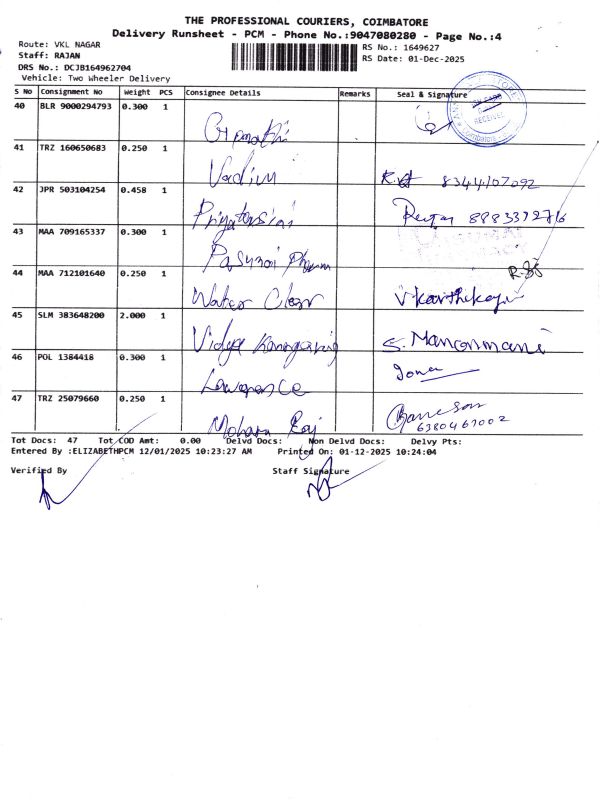 THE PROFESSIONAL COURIERS, COIMBATORE
Delivery Runsheet - PCM - Phone No.:9047080280 - Page No.:4
Route: VKL NAGAR
RS No.: 1649627
Staff: RAJAN
RS Date: 01-Dec-2025
DRS No.: DCJB164962704
Vehicle: Two Wheeler Delivery
S No Consignment No Weight PCS Consignee Details Remarks Seal & Signature
40 BLR 9000294793 0.300 1
RECEIVED
41 TRZ 160650683 0.250 1
8344107092
42 JPR 503104254 0.458 1
Priyadarsini
43 MAA 709165337 0.300 1
44 MAA 712101640 0.250 1
Water Clear V Karthikeyan
45 SLM 383648200 2.000 1
Vidya S. Manonmani
46 POL 1384418 0.300 1
Lawrance
47 TRZ 25079660 0.250 1
Mohan Raj Ganesan
6380467002
Tot Docs: 47 Tot COD Amt: 0.00 Delvd Docs: Non Delvd Docs: Delvy Pts:
Entered By :ELIZABETHPCM 12/01/2025 10:23:27 AM Printed On: 01-12-2025 10:24:04
Verified By Staff Signature